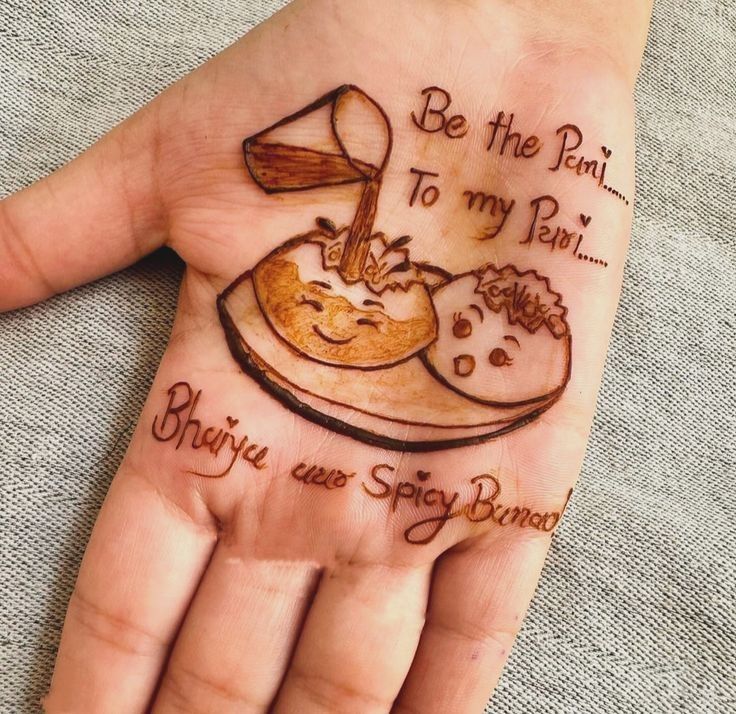 Be the Pani......
To my Puri.....
Bhaiya aur Spicy Banao!